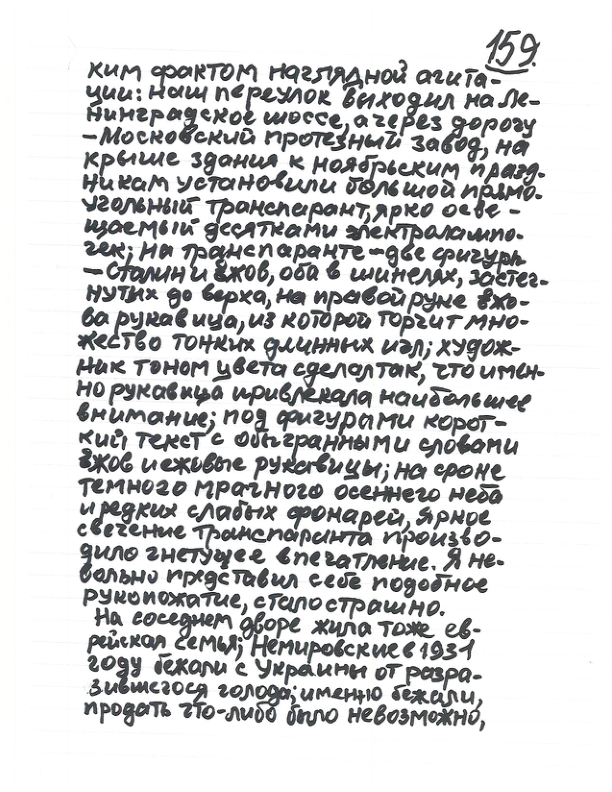 159.
ким фактом наглядной агита-
ции: наш переулок выходил на Ле-
нинградское шоссе, а через дорогу
-Московский протезный завод, на
крыше здания к ноябрьским празд-
никам установили большой прямо-
угольный транспарант, ярко осве-
щаемый десятками электролампо-
чек; на транспаранте-две фигуры
-Сталин и Ежов, оба в шинелях, застег-
нутых до верха, на правой руке Ежо-
ва рукавица, из которой торчит мно-
жество тонких длинных игл; худож-
ник тоном цвета сделал так, что имен-
но рукавица привлекала наибольшее
внимание; под фигурами корот-
кий текст с обыгранными словами
Ежов и ежовые рукавицы; на фоне
темного мрачного осеннего неба
и редких слабых фонарей, яркое
свечение транспаранта произво-
дило гнетущее впечатление. Я не-
вольно представил себе подобное
рукопожатие, стало страшно.
На соседнем дворе жила тоже ев-
рейская семья; Немировские в 1931
году бежали с Украины от разра-
зившегося голода; именно бежали,
продать что-либо было невозможно,